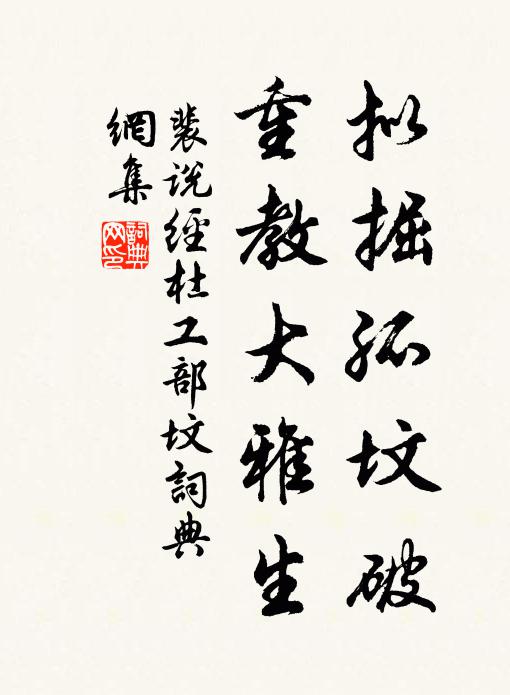 拟掘孤坟破
重教大雅生
裴说经杜工部坟詞典
網集
詞典网印